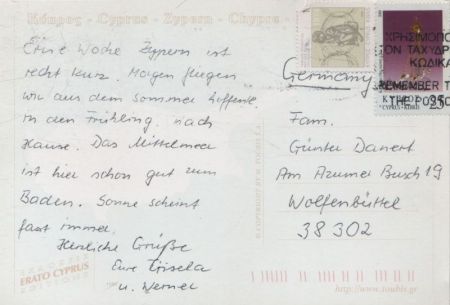 Κύπρος - Cyprus - Zypern - Chypre
Eine Woche Zypern ist
recht kurz. Morgen fliegen
wir aus dem Sommer hoffentl.
in den Frühling nach
Hause. Das Mittelmeer
ist hier schon gut zum
Baden. Sonne scheint
fast immer.
Herzliche Grüße
Eure Gisela
u. Werner
ΕΚΔΟΣΕΙΣ
ERATO CYPRUS
EDITIONS
© COPYRIGHT BY M. TOUBIS S.A.
ΧΡΗΣΙΜΟΠΟ
ΤΟΝ ΤΑΧΥΔΡ
ΚΩΔΙΚΑ
REMEMBER T
THE POSTC
25
Germany
Fam.
Günter Danert
Am Azumer Busch 19
Wolfenbüttel
38 302
http://www.toubis.gr